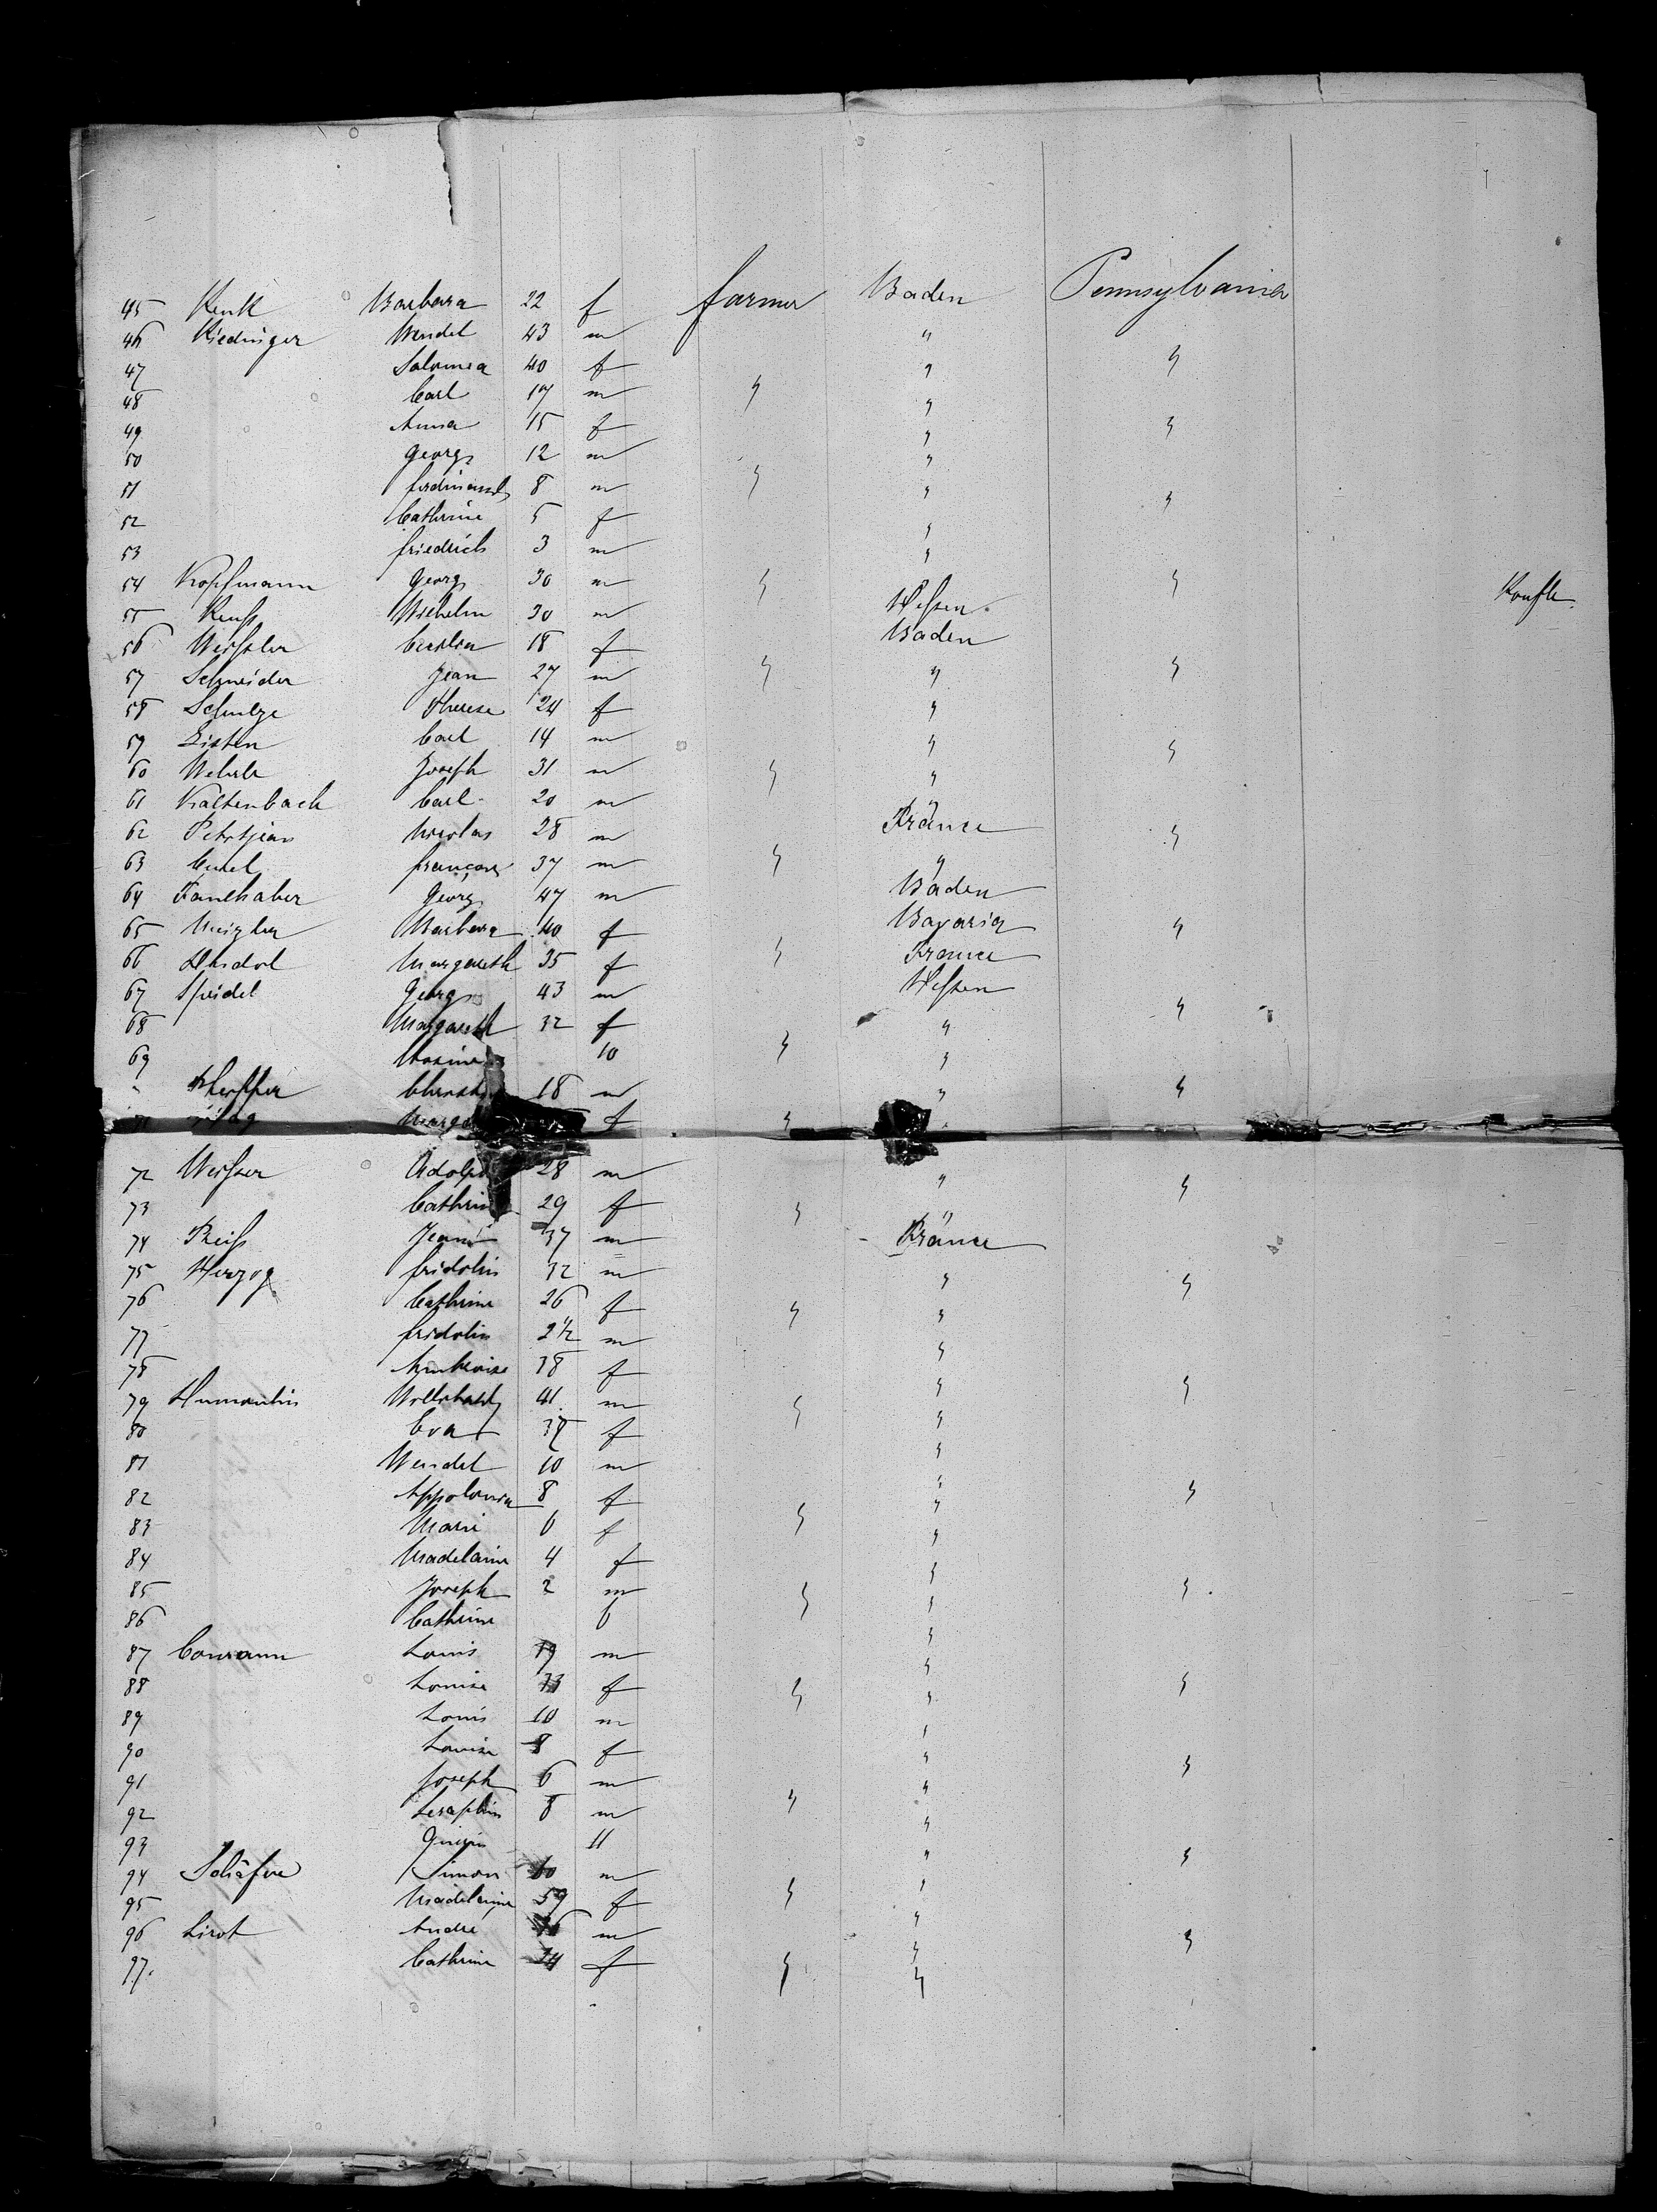 45 Renk Barbara 22 f farmer Baden Pennsylvania
46 Riedinger Wendel 43 m "
47 Salomea 40 f " "
48 Carl 17 m " "
49 Anna 15 f " "
50 Georg 12 m "
51 ferdinand 8 m " "
52 Cathrine 5 f " "
53 friedrich 3 m "
54 Kopfmann Georg 30 m " Heſsen "
55 Wilhelm 30 m Baden
56 18 f
57 Schneider Jean 27 m " " "
58 Schulze Therese 24 f "
59 Carl 14 m " "
60 Wehrle Joseph 31 m " "
61 Kaltenbach Carl 20 m "
62 Petitjean Nicolas 28 m France "
63 françois 37 m " "
64 Faulhaber Georg 47 m Baden
65 Barbara 40 f Bavaria "
66 Margareth 35 f " France
67 Speidel Georg 43 m Heſsen
68 Margareth 32 f " "
69 10 " "
18 m " "
f " "
72 Weiſser Adolph 28 m " "
73 Cathrine 29 f " "
74 Reiſs Jean 37 m France
75 Herzog fridolin 32 m " "
76 Cathrine 26 f " "
77 fridolin 2 1/2 m "
78 Ambroise 38 f "
79 41 m " "
80 Eva f "
81 Wendel 10 m "
82 Appolonia 8 f " "
83 Marie 6 f " "
84 Madelaine 4 f "
85 Joseph 2 m " "
86 Cathrine 6 "
87 Conrann Louis m "
88 Louise 33 f " "
89 Louis 10 m "
90 Louise 8 f "
91 Joseph 6 m " "
92 Seraphin 8 m " "
93 11 "
94 Schäfer Simon 60 m " "
95 Madelaine 59 f " "
96 Lirot Andre m "
97. Cathrine 24 f " " "